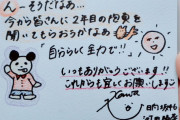 ん そうだなぁ…
今から皆さんに2年目の抱負を
聞いてもらおうかなぁ
「自分らしく全力で!!」
いつもありがとうございます!!
これからも宜しくお願いします
日向坂46